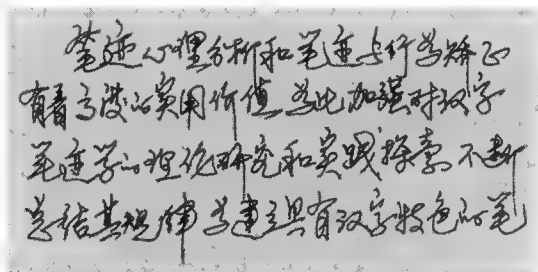 笔迹心理分析和笔迹与行为矫正
有着高度的实用价值,为此加强对汉字
笔迹学的理论研究和实践探索,不断
总结其规律,为建立具有汉字特色的笔